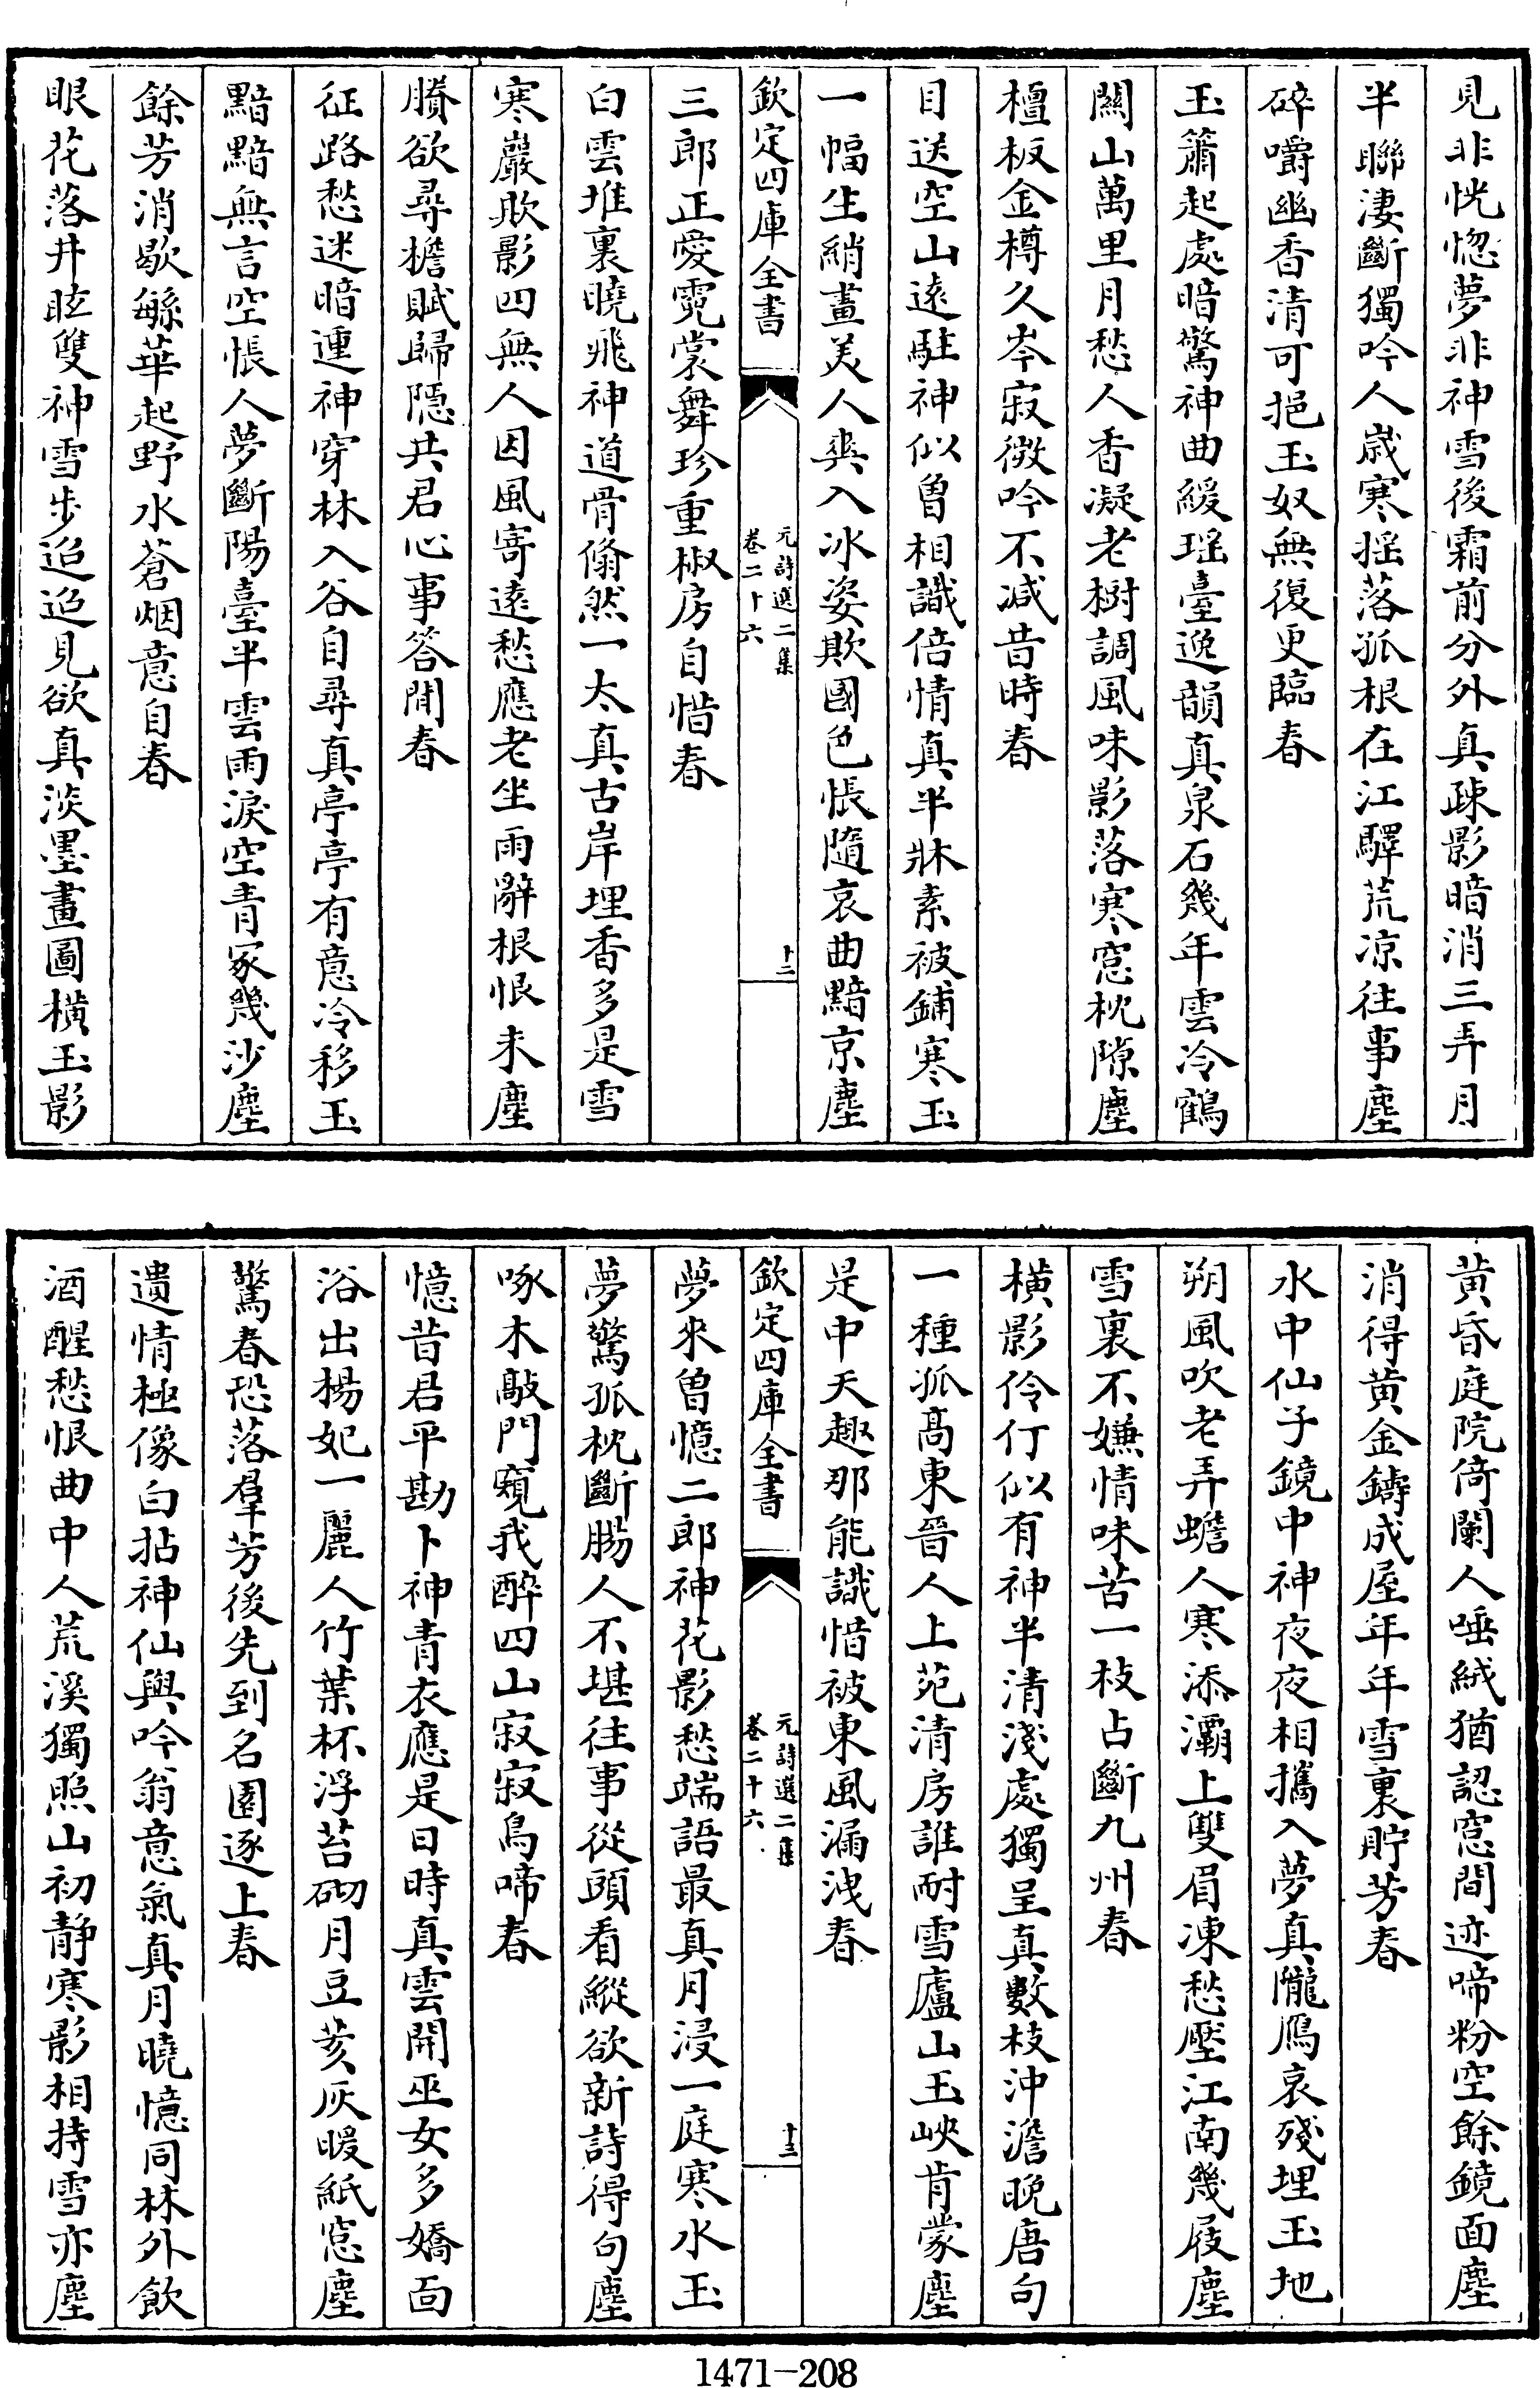 見非恍惚夢非神雪後霜前分外真疎影暗消三弄月
半聯淒斷獨吟人歲寒揺落孤根在江驛荒凉往事塵
碎嚼幽香清可挹玉奴無復更臨春
玉簫起處暗驚神曲緩瑶臺逸韻真泉石幾年雲冷鶴
關山萬里月愁人香凝老樹調風味影落寒窓枕隙塵
檀板金樽久岑寂微吟不减昔時春
目送空山逺駐神似曾相識倍情真半牀素被鋪寒玉
一幅生綃畫美人爽入冰姿欺國色悵隨哀曲黯京塵
欽定四庫全書
元詩選二集
卷二十六
十二
三郎正愛霓裳舞珍重椒房自惜春
白雲堆裏曉飛神道骨翛然一太真古岸埋香多是雪
寒巖欺影四無人因風寄逺愁應老坐雨辭根恨未塵
賸欲尋檐賦歸隠共君心事答閒春
征路愁迷暗運神穿林入谷自尋真亭亭有意冷移玉
黯黯無言空悵人夢斷陽臺半雲雨淚空青冢幾沙塵
餘芳消歇緐華起野水蒼烟意自春
眼花落井眩雙神雪步迢迢見欲真淡墨畫圖橫玉影
黄昏庭院倚闌人唾絨猶認窓間迹啼粉空餘鏡面塵
消得黄金鑄成屋年年雪裏貯芳春
水中仙子鏡中神夜夜相攜入夢真隴鴈哀殘埋玉地
朔風吹老弄蟾人寒添灞上雙眉凍愁壓江南幾屐塵
雪裏不嫌情味苦一枝占斷九州春
橫影伶仃似有神半清淺處獨呈真數枝沖澹晚唐句
一種孤髙東晉人上苑清房誰耐雪廬山玉峽肯蒙塵
是中天趣那能識惜被東風漏洩春
欽定四庫全書
元詩選二集
卷二十六
十三
夢來曾憶二郎神花影愁端語最真月浸一庭寒水玉
夢驚孤枕斷腸人不堪往事從頭看縱欲新詩得句塵
啄木敲門窺我醉四山寂寂鳥啼春
憶昔君平勘卜神青衣應是日時真雲開巫女多嬌面
浴出楊妃一麗人竹葉杯浮苔砌月豆荄灰暖紙窓塵
驚春恐落羣芳後先到名園逐上春
遺情極像白拈神仙與吟翁意氣真月曉憶同林外飲
酒醒愁恨曲中人荒溪獨照山初静寒影相持雪亦塵
1471-208